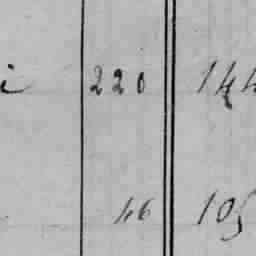 i 220 144
46 105